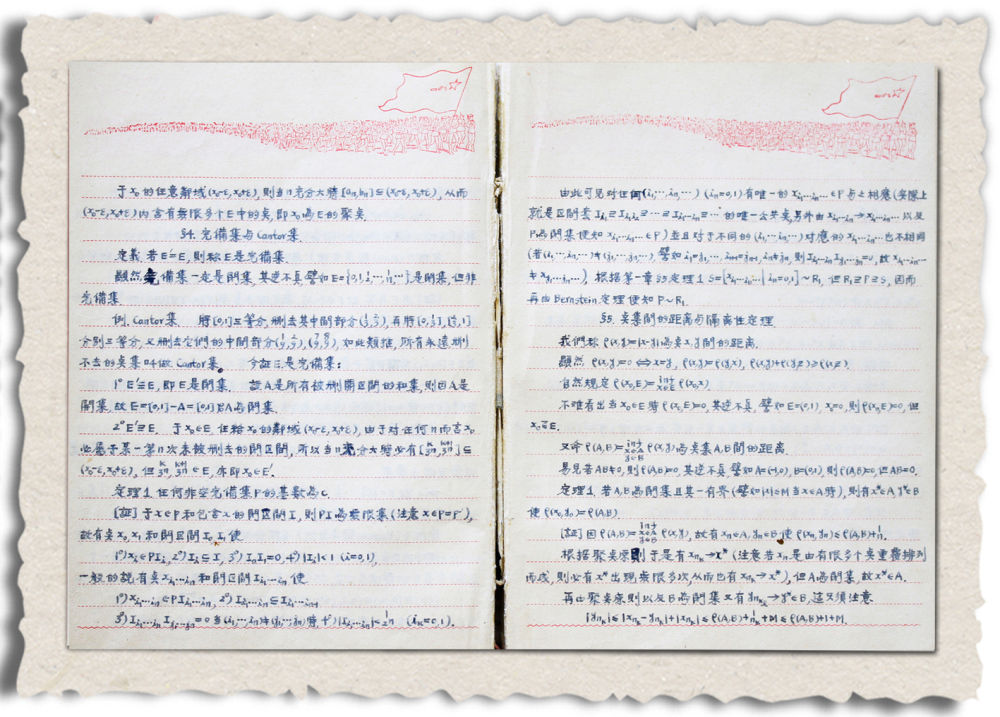 于x₀的任意鄰域(x₀-ε,x₀+ε),則当n充分大時[aₙ,bₙ]⊆(x₀-ε,x₀+ε),从而
(x₀-ε,x₀+ε)内含有無限多个E中的矣,即x₀爲E的聚矣.
§4. 完備集与Cantor集.
定義 若E'=E,則称E是完備集.
顯然完備集一定是閉集,其逆不真,譬如E={0,1,½,…,1/n,…}是閉集,但非
完備集.
例. Cantor集. 将[0,1]三等分,刪去其中間部分(⅓,⅔),再将[0,⅓],[⅔,1]
分别三等分,又刪去它們的中間部分(1/9,2/9),(7/9,8/9),如此類推,所有永遠刪
不去的矣集叫做Cantor集. 今証E是完備集:
1° E'⊆E,即E是閉集. 設A是所有被刪開区間的和集,則因A是
開集,故E=[0,1]-A=[0,1]∁A爲閉集.
2° E'⊇E. 于x₀∈E,任給x₀的鄰域(x₀-ε,x₀+ε),由于对任何n而言x₀
必屬于某一第n次未被刪去的閉区間,所以当n充分大時必有[k/3ⁿ,(k+1)/3ⁿ]⊆
(x₀-ε,x₀+ε),但k/3ⁿ,(k+1)/3ⁿ∈E,亦即x₀∈E'.
定理1. 任何非空完備集P的基数爲c.
[証] 于x∈P和包含x的開区間I,則PI爲無限集(注意x∈P=P'),
故有矣x₀,x₁和閉区間I₀,I₁使
1°) xᵢ∈PIᵢ, 2°) Iᵢ⊆I, 3°) I₀I₁=0, 4°) |Iᵢ|<1 (i=0,1),
一般的說有矣x_{i₁…iₙ}和閉区間I_{i₁…iₙ}使
1°) x_{i₁…iₙ}∈PI_{i₁…iₙ}, 2°) I_{i₁…iₙ}⊆I_{i₁…iₙ₋₁}
3°) I_{i₁…iₙ}I_{j₁…jₙ}=0当(i₁,…,iₙ)≠(j₁,…,jₙ)時, 4°) |I_{i₁…iₙ}|<1/2ⁿ (iₖ=0,1).
由此可見对任何(i₁,…iₙ…)(iₙ=0,1)有唯一的x_{i₁…iₙ…}∈P与之相應(实際上
就是区間套I_{i₁}⊇I_{i₁i₂}⊇…⊇I_{i₁…iₙ}⊇…的唯一公共矣,另外由x_{i₁…iₙ}→x_{i₁…iₙ…}以及
P爲閉集便知x_{i₁…iₙ…}∈P)並且对于不同的(i₁,…iₙ…)对應的x_{i₁…iₙ…}也不相同
(若(i₁,…iₙ…)≠(j₁,…jₙ…),譬如i₁=j₁,…iₙ₋₁=jₙ₋₁,iₙ≠jₙ,則I_{i₁…iₙ}I_{j₁…jₙ}=0,故x_{i₁…iₙ…}
≠x_{j₁…jₙ…}). 根据第一章§5定理1 S=[x_{i₁…iₙ…}|iₙ=0,1]~R₁,但R₁⊇P⊇S,因而
再由Bernstein定理便知P~R₁.
§5. 矣集間的距离与隔离性定理.
我們称ρ(x,y)=|x-y|爲矣x,y間的距离.
顯然 ρ(x,y)=0⇔x=y, ρ(x,y)=ρ(y,x), ρ(x,y)+ρ(y,z)≥ρ(x,z).
自然規定ρ(x₀,E)=inf_{x∈E}ρ(x₀,x).
不难看出当x₀∈E時ρ(x₀,E)=0,其逆不真,譬如E=(0,1),x₀=0,則ρ(x₀,E)=0,但
x₀∉E.
又命ρ(A,B)=inf_{x∈A,y∈B}ρ(x,y)爲矣集A,B間的距离.
易見若AB≠0,則ρ(A,B)=0,其逆不真,譬如A=(-1,0),B=(0,1),則ρ(A,B)=0,但AB=0.
定理1. 若A,B爲閉集且其一有界(譬如|x|≤M当x∈A時),則有x*∈A,y*∈B
使ρ(x*,y*)=ρ(A,B).
[証] 因ρ(A,B)=inf_{x∈A,y∈B}ρ(x,y),故有xₙ∈A,yₙ∈B,使ρ(xₙ,yₙ)≤ρ(A,B)+1/n.
根据聚矣原則于是有x_{nₖ}→x*(注意若xₙ是由有限多个矣重覆排列
而成,則必有x*出現無限多次从而也有x_{nₖ}→x*),但A爲閉集,故x*∈A.
再由聚矣原則以及B爲閉集又有y_{nₖᵢ}→y*∈B,這又須注意
|y_{nₖ}|≤|x_{nₖ}-y_{nₖ}|+|x_{nₖ}|≤ρ(A,B)+1/nₖ+M≤ρ(A,B)+1+M.